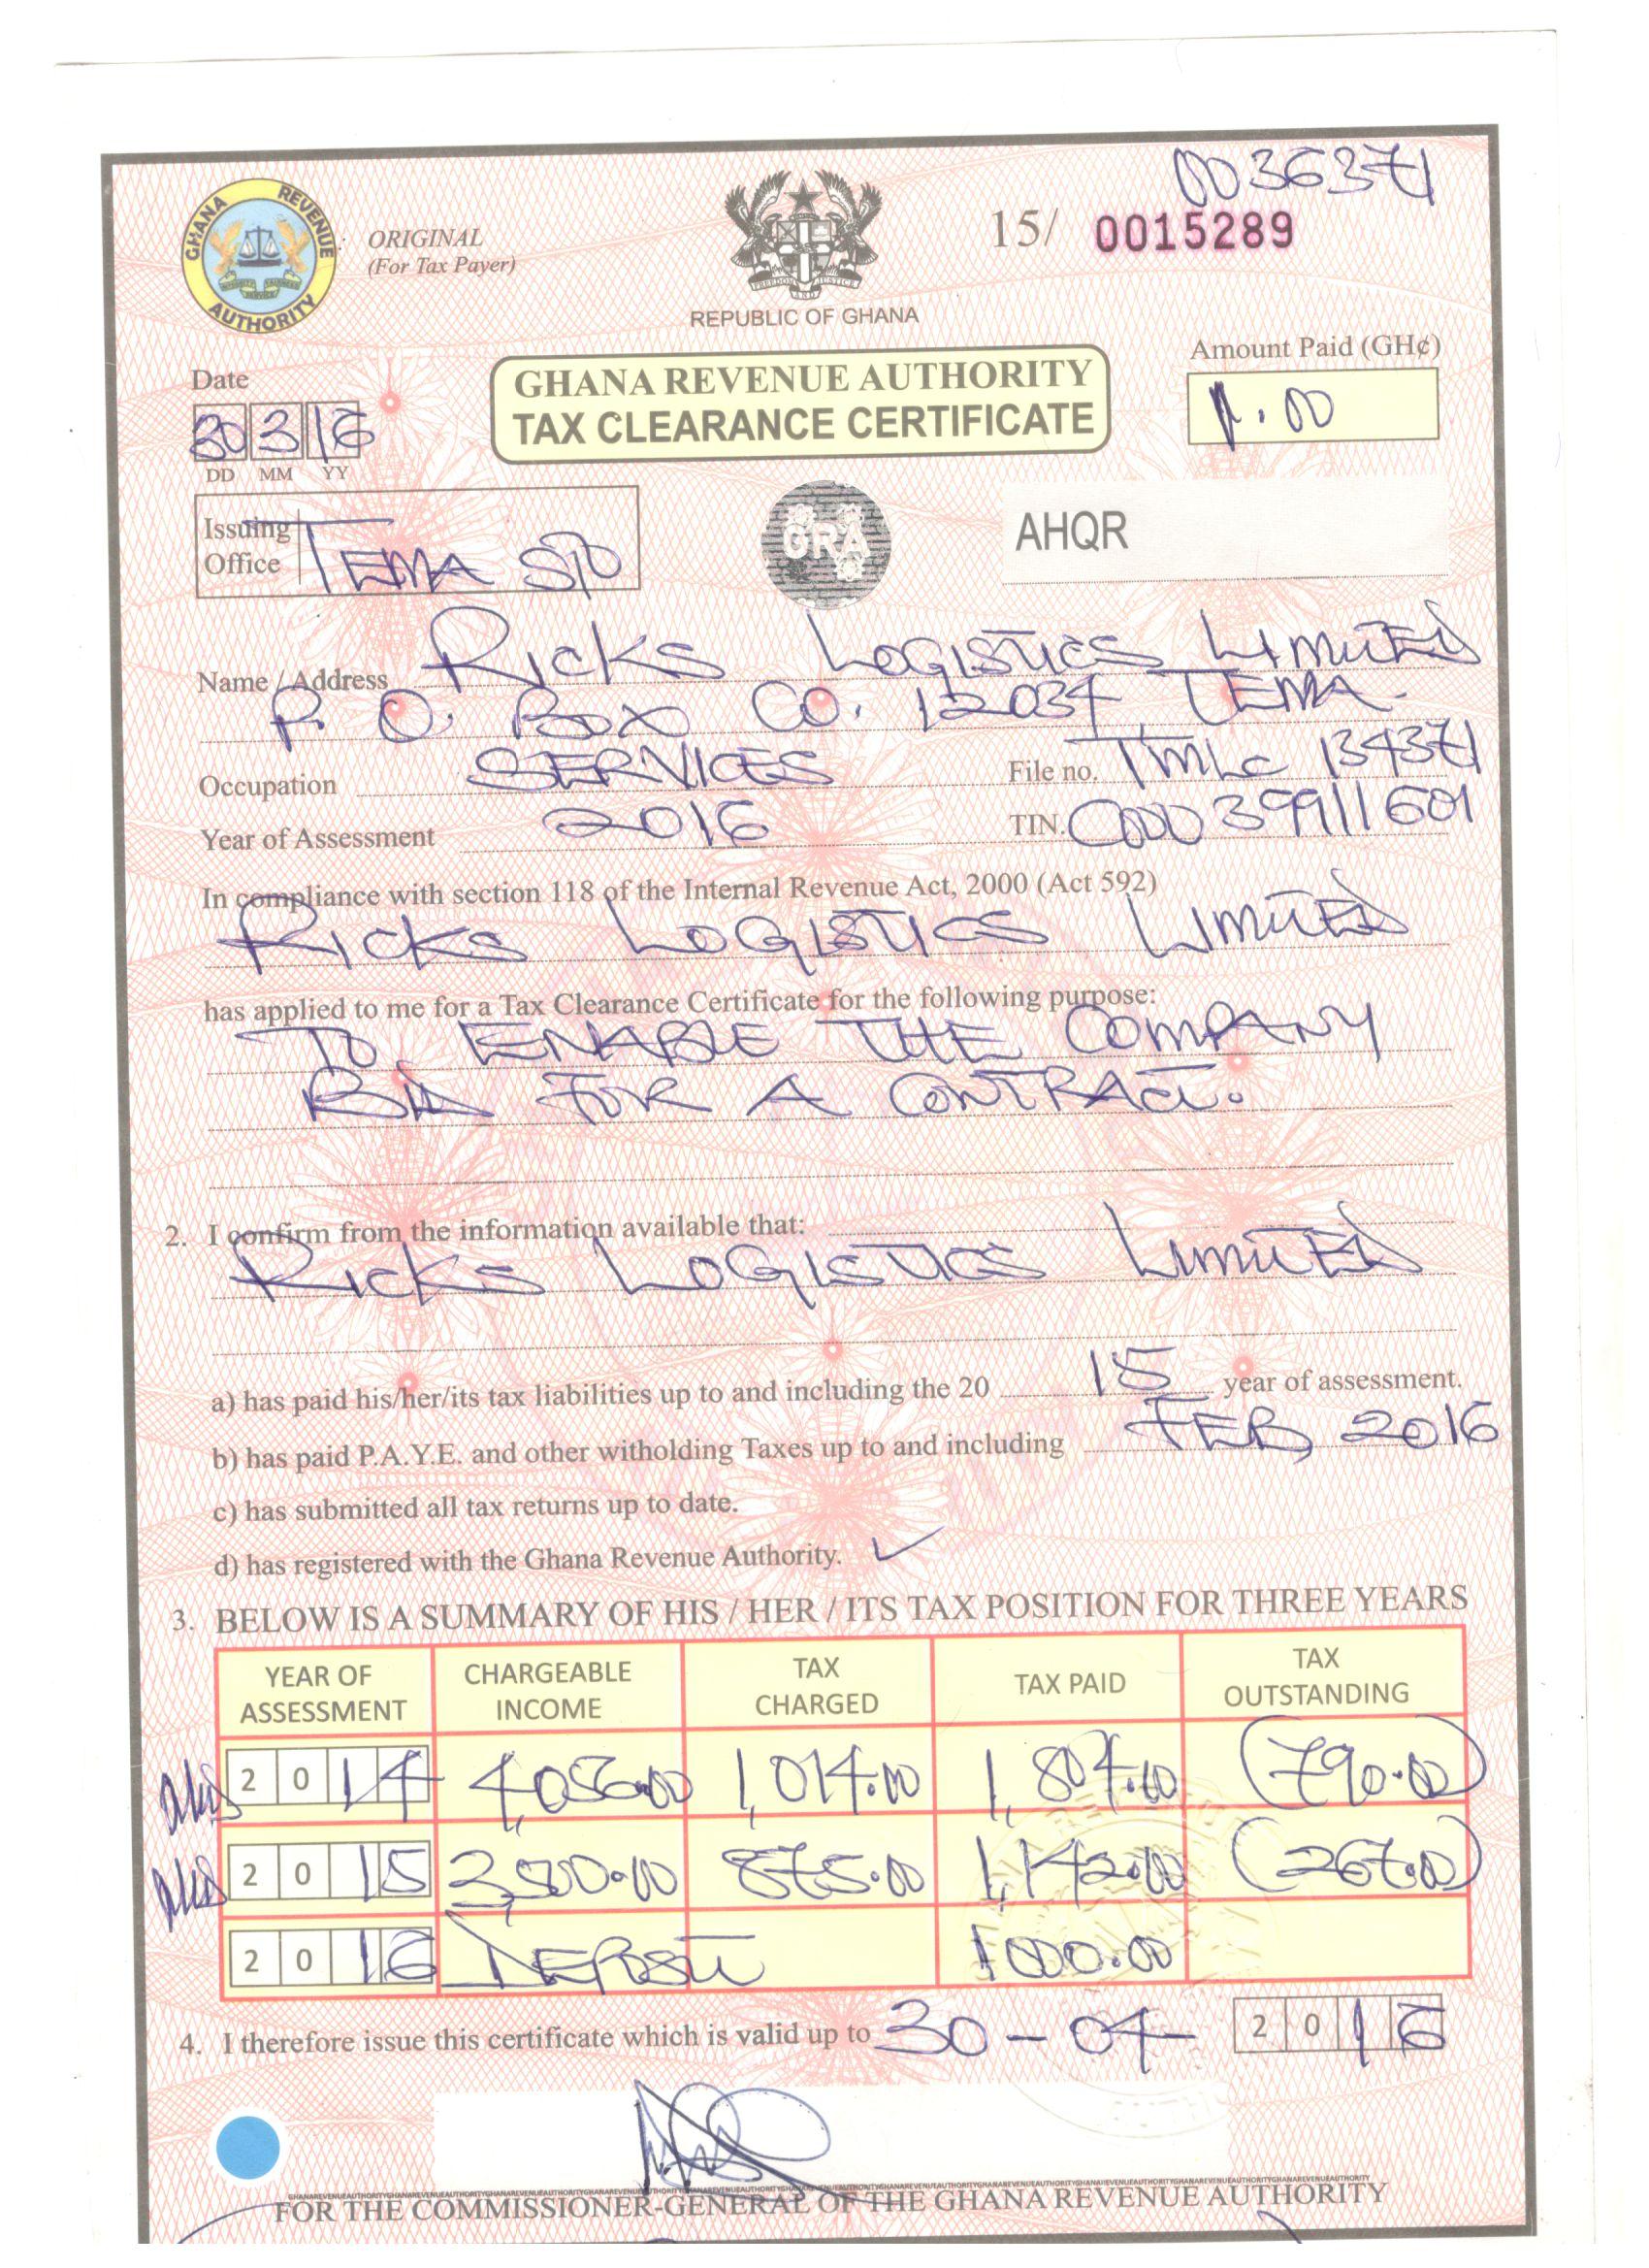 0036371
GHANA REVENUE AUTHORITY
ORIGINAL
(For Tax Payer)
FREEDOM AND JUSTICE
REPUBLIC OF GHANA
15/ 0015289
Date
30 3 16
DD MM YY
GHANA REVENUE AUTHORITY
TAX CLEARANCE CERTIFICATE
Amount Paid (GH¢)
1.00
Issuing Office TEMA SPO
GRA
AHQR
Name / Address RICKS LOGISTICS LIMITED
P. O. BOX CO. 12034, TEMA.
Occupation SERVICES File no. TMLC 134371
Year of Assessment 2016 TIN. C000 39911601
In compliance with section 118 of the Internal Revenue Act, 2000 (Act 592)
RICKS LOGISTICS LIMITED
has applied to me for a Tax Clearance Certificate for the following purpose:
TO ENABLE THE COMPANY
BID FOR A CONTRACT.
2. I confirm from the information available that:
RICKS LOGISTICS LIMITED
a) has paid his/her/its tax liabilities up to and including the 20 15 year of assessment.
b) has paid P.A.Y.E. and other witholding Taxes up to and including FEB 2016
c) has submitted all tax returns up to date.
d) has registered with the Ghana Revenue Authority. ✓
3. BELOW IS A SUMMARY OF HIS / HER / ITS TAX POSITION FOR THREE YEARS
YEAR OF ASSESSMENT CHARGEABLE INCOME TAX CHARGED TAX PAID TAX OUTSTANDING
2014 4,056.00 1,014.00 1,804.00 (790.00)
2015 3,500.00 875.00 1,142.00 (267.00)
2016 DEPOSIT 1000.00
4. I therefore issue this certificate which is valid up to 30-04- 2016
FOR THE COMMISSIONER-GENERAL OF THE GHANA REVENUE AUTHORITY